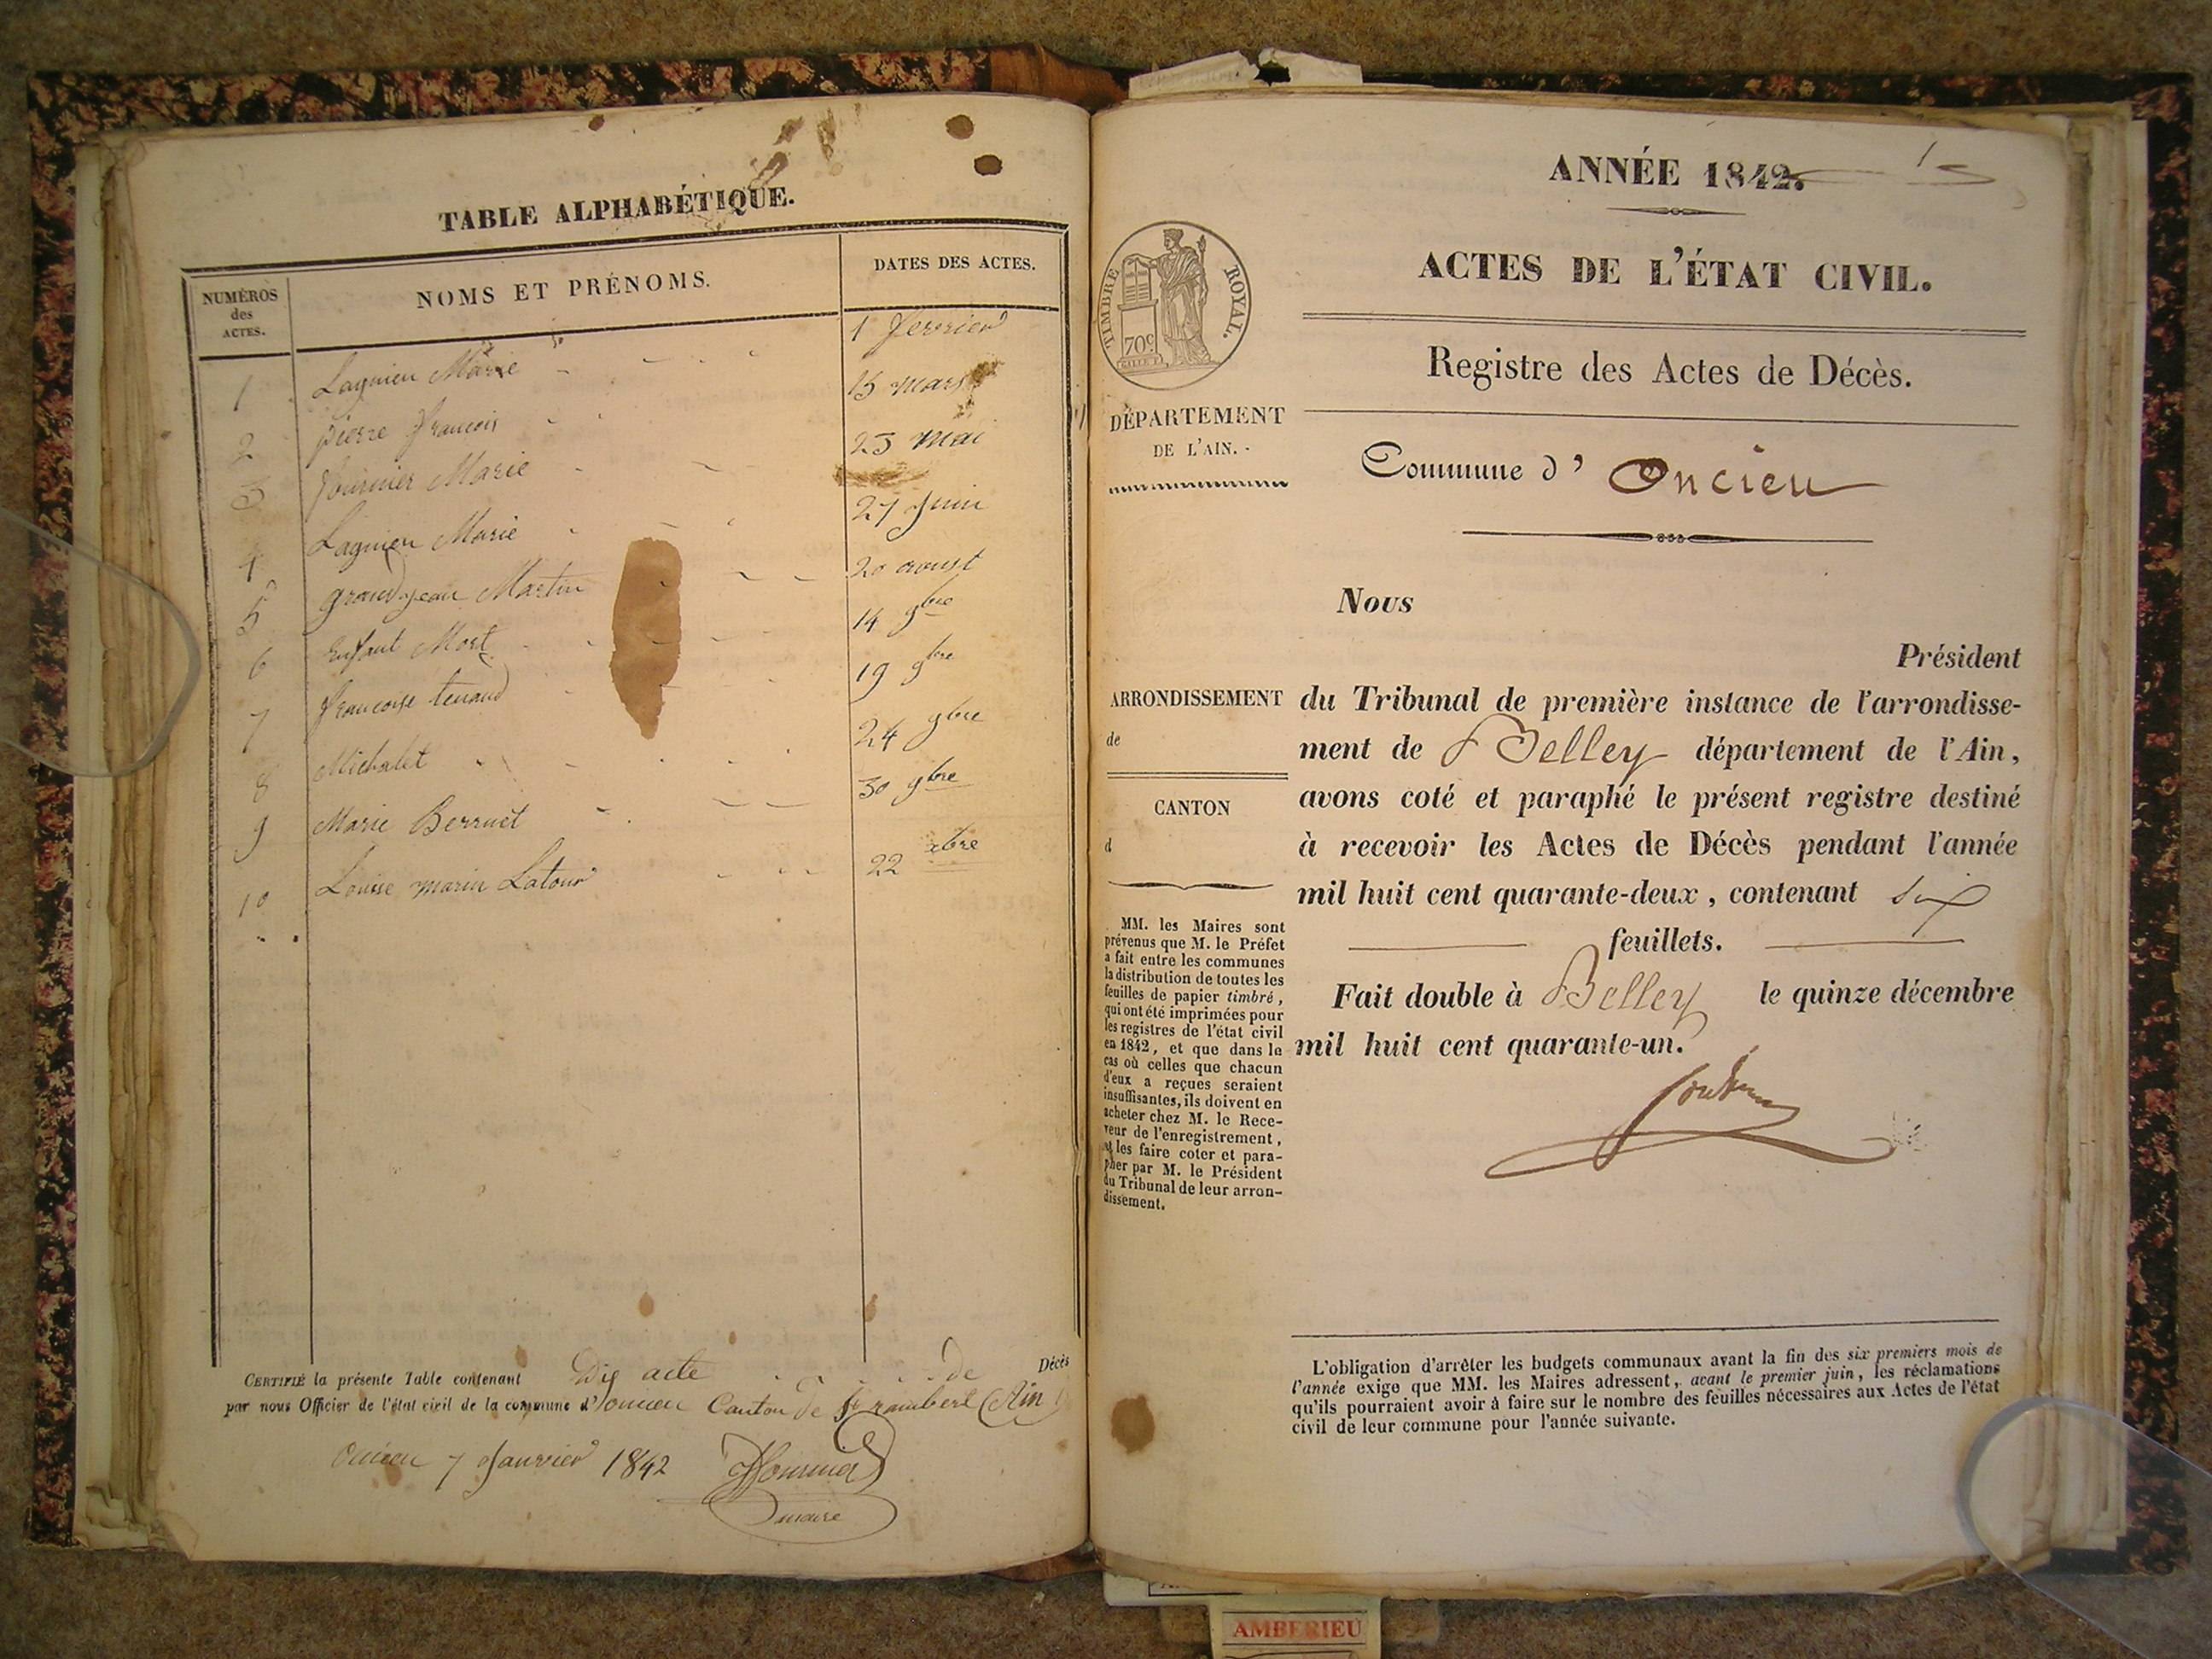 TABLE ALPHABÉTIQUE.
NUMÉROS des ACTES. NOMS ET PRÉNOMS. DATES DES ACTES.
1 Lagnieu Marie 1 fevrier
2 pierre francois 15 mars
3 fournier Marie 23 mai
4 Lagnieu Marie 27 Juin
5 grand jean Martin 20 aoust
6 Enfant Mort 14 9bre
7 francoise tenand 19 9bre
8 Michalet 24 9bre
9 Marie Berruet 30 9bre
10 Louise marin Latour 22 xbre
CERTIFIÉ la présente Table contenant Dix acte de Décès
par nous Officier de l'état civil de la commune d'oncieu Canton de St rambert (Ain)
Oncieu 7 Janvier 1842
maire
ANNÉE 1842.
1
ACTES DE L'ÉTAT CIVIL.
TIMBRE ROYAL.
70c
Registre des Actes de Décès.
DÉPARTEMENT
DE L'AIN.
Commune d' Oncieu
Nous
Président
ARRONDISSEMENT
de
du Tribunal de première instance de l'arrondisse-
ment de Belley département de l'Ain,
avons coté et paraphé le présent registre destiné
à recevoir les Actes de Décès pendant l'année
mil huit cent quarante-deux, contenant six
feuillets.
Fait double à Belley le quinze décembre
mil huit cent quarante-un.
CANTON
d
MM. les Maires sont
prévenus que M. le Préfet
a fait entre les communes
la distribution de toutes les
feuilles de papier timbré,
qui ont été imprimées pour
les registres de l'état civil
en 1842, et que dans le
cas où celles que chacun
d'eux a reçues seraient
insuffisantes, ils doivent en
acheter chez M. le Rece-
veur de l'enregistrement,
et les faire coter et para-
pher par M. le Président
du Tribunal de leur arron-
dissement.
L'obligation d'arrêter les budgets communaux avant la fin des six premiers mois de
l'année exige que MM. les Maires adressent, avant le premier juin, les réclamations
qu'ils pourraient avoir à faire sur le nombre des feuilles nécessaires aux Actes de l'état
civil de leur commune pour l'année suivante.
AMBERIEU